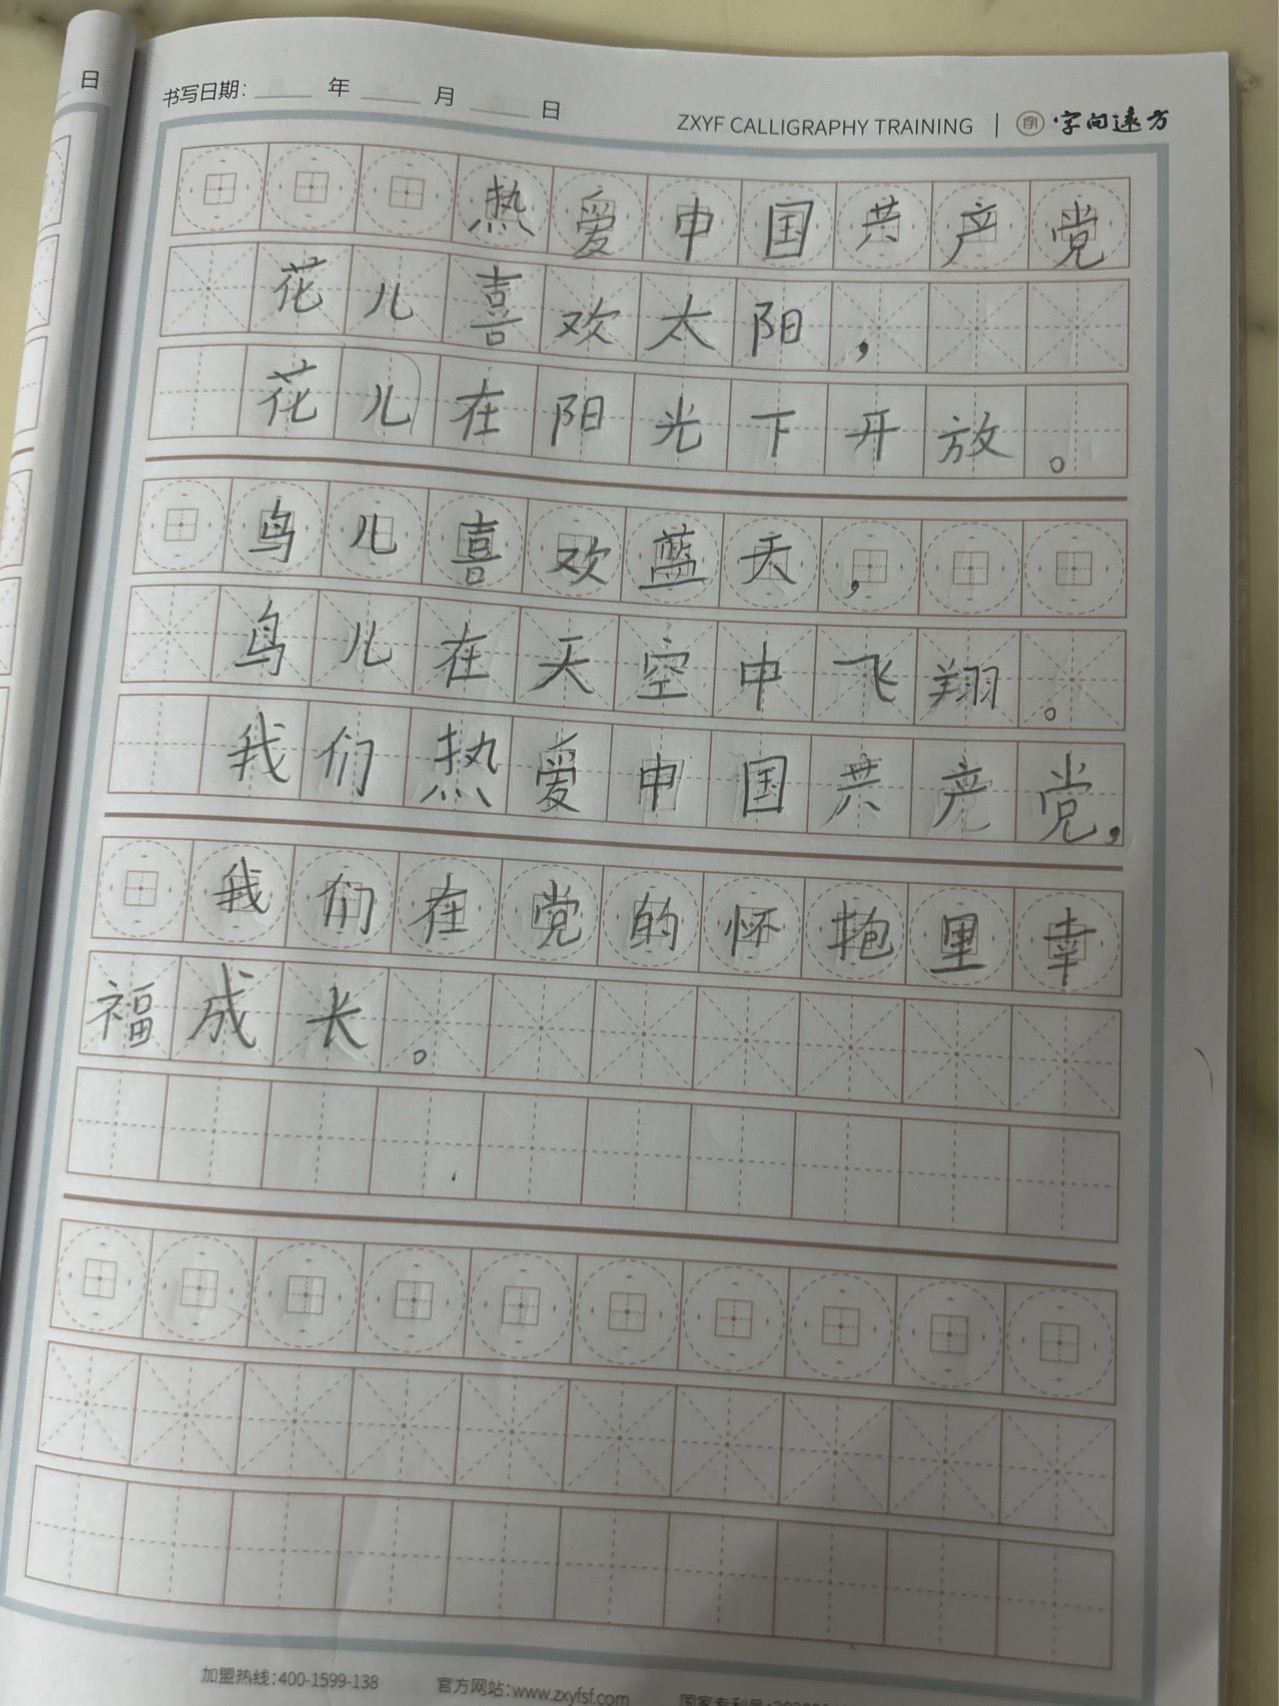 日
书写日期: 年 月 日
ZXYF CALLIGRAPHY TRAINING | 字向远方
热爱中国共产党
花儿喜欢太阳，
花儿在阳光下开放。
鸟儿喜欢蓝天，
鸟儿在天空中飞翔。
我们热爱中国共产党，
我们在党的怀抱里幸
福成长。
加盟热线:400-1599-138 官方网站:www.zxyfsf.com 国家专利号: